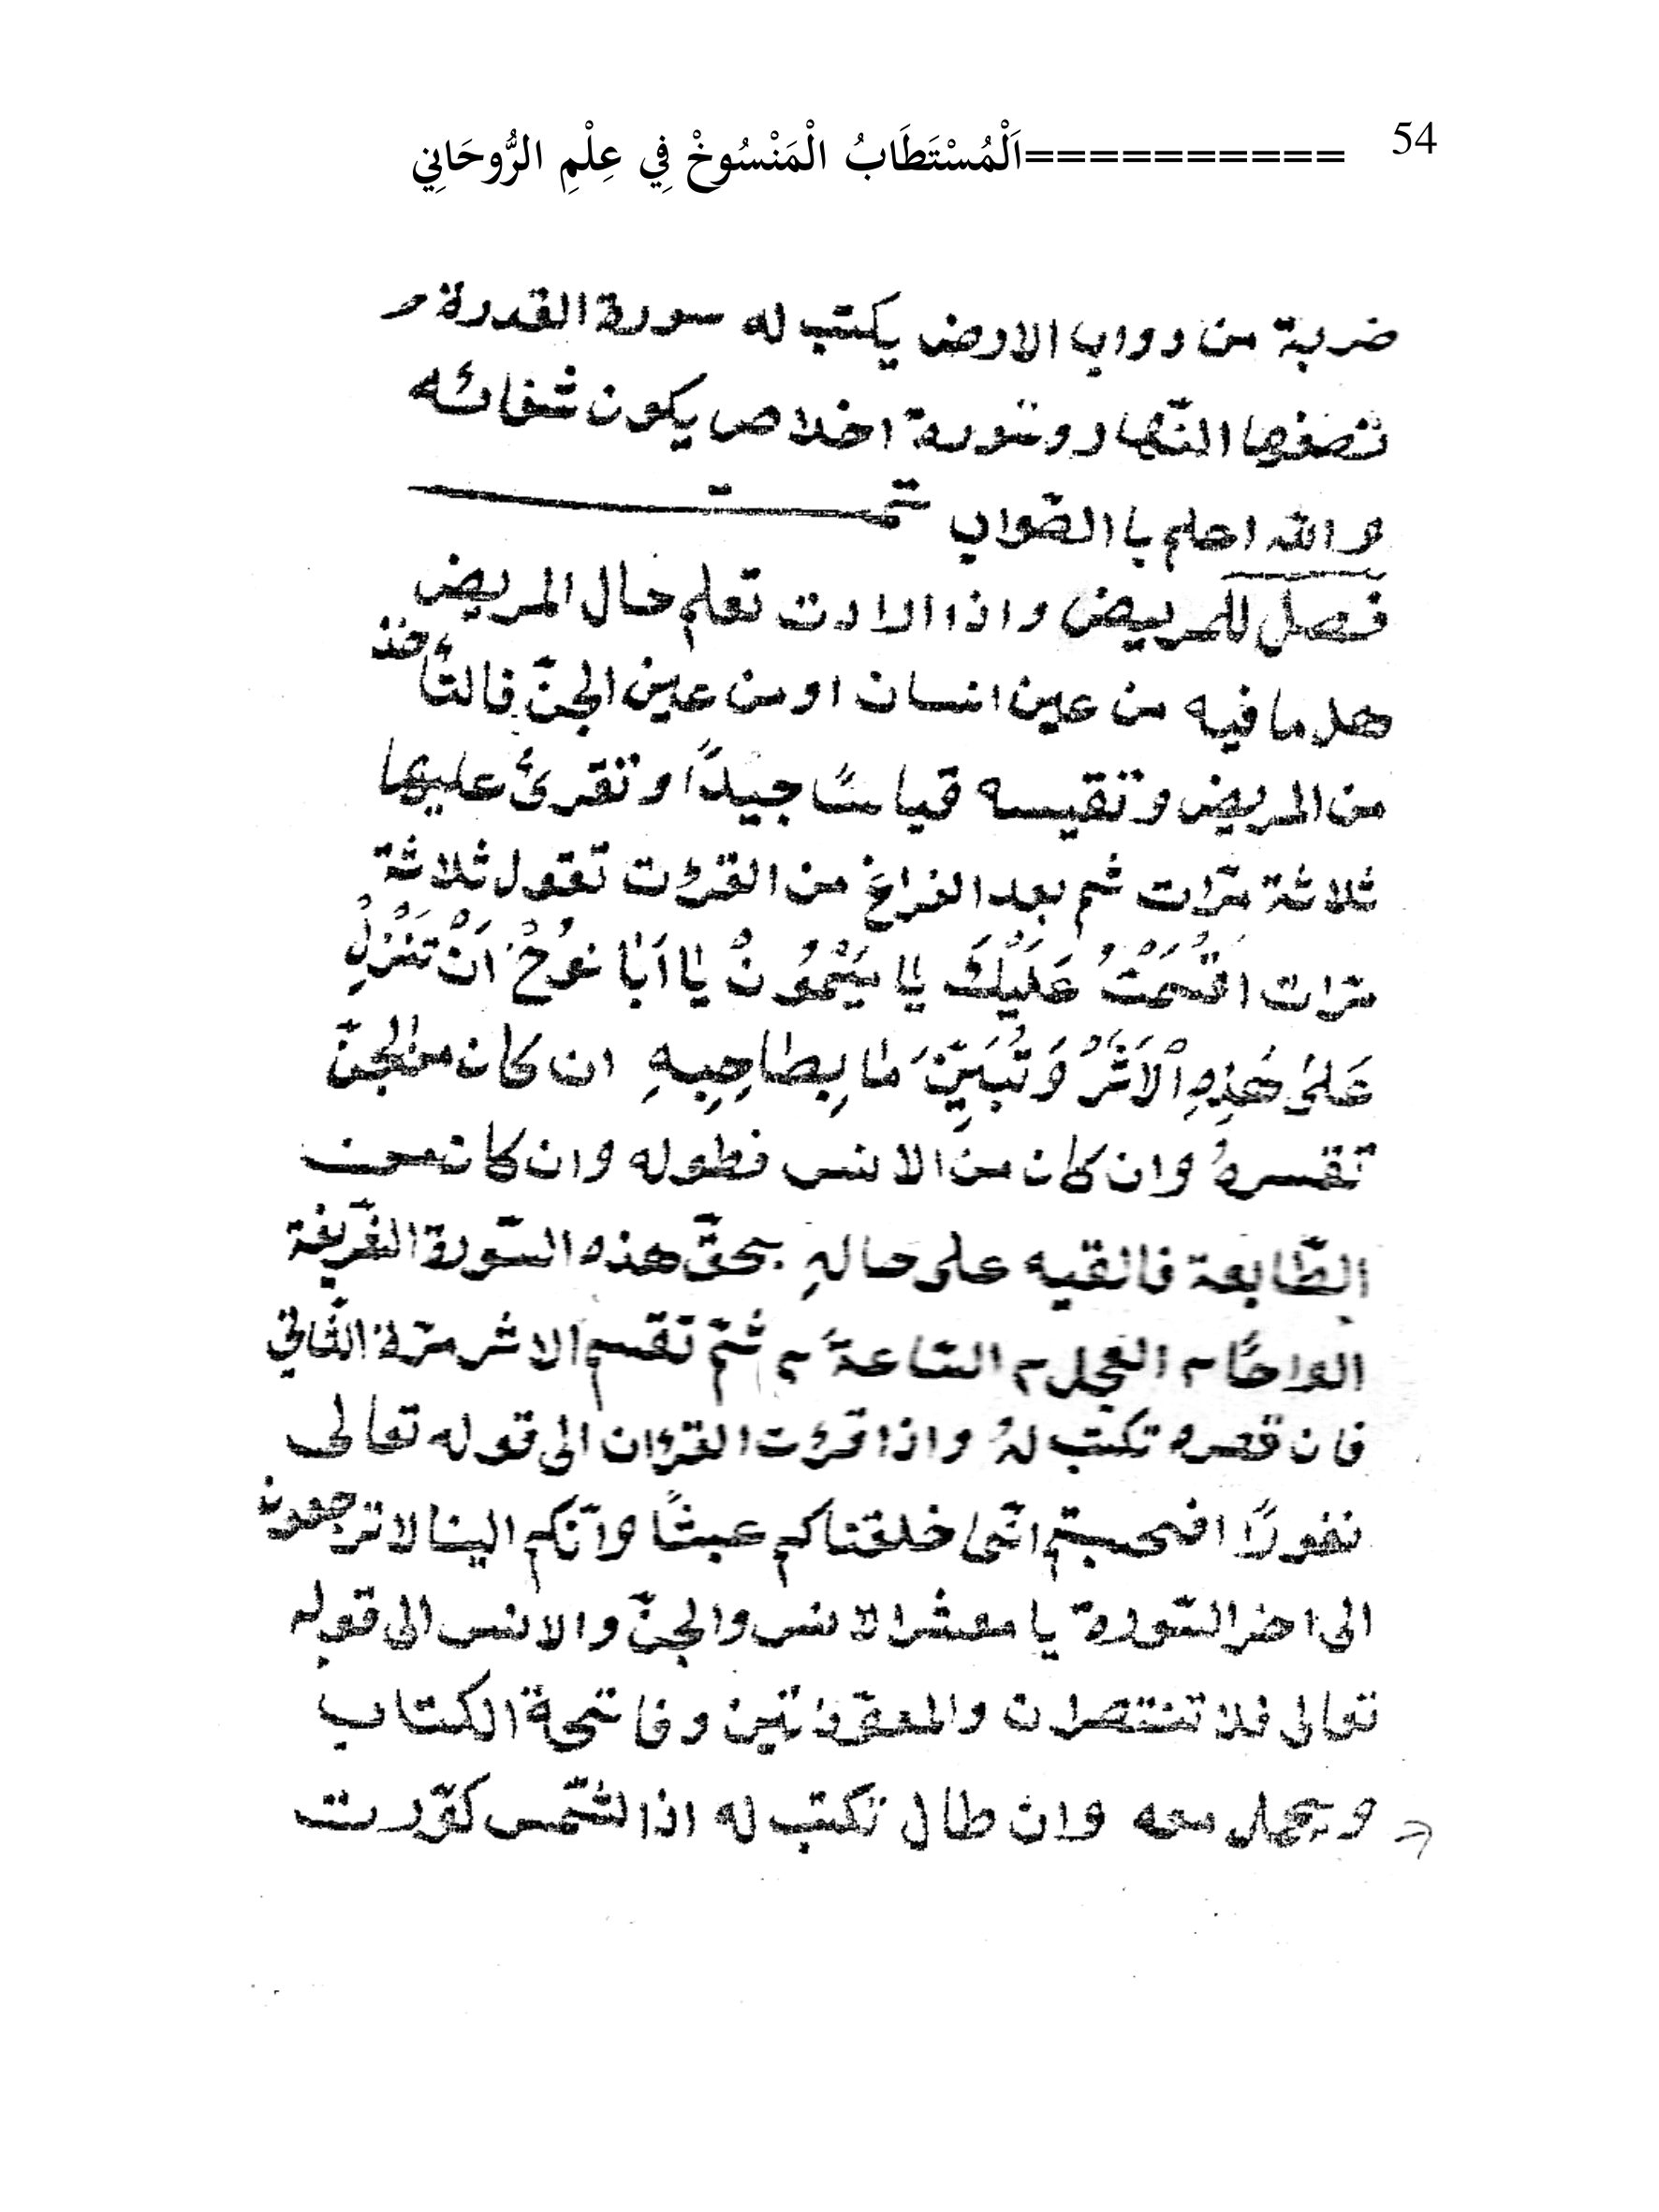 54 ==========اَلْمُسْتَطَابُ الْمَنْسُوخْ فِي عِلْمِ الرُّوحَانِي
ضربة من دواب الارض يكتب له سورة القدرة م
نصفها النّهار وسورة اخلاص يكون شفائه
والله اعلم باالصّواب تمت
فصل للمريض واذا الارادت تعلم حال المريض
هل ما فيه من عين انسان او من عين الجنّ فالتأخذ
من المريض وتقيسه قياسًا جيدًا وتقرئ عليها
ثلاثة مرّات ثم بعد الفراغ من القرؤت تقول ثلاثة
مرّات اقْسَمْتُ عَلَيْكَ يا مَيْمُونْ يا اَبا نُوخْ اَنْ تَنْزِلْ
عَلىٰ هَذِهِ الْاَثَرْ وَتُبَيِّنَ ما بِصاحِبِهِ ان كان من الجنّ
تقسرهُ وان كان من الانس فطوله وان كان من
الطّابعة فالقيه على حالهِ بحقّ هذه السّورة الشّريفة
الواحًا م العجل م السّاعةً م ثمّ تقسم الاثر مرّة الثّاني
فان قصره تكتب لهُ واذا قرئت القرؤان الى قوله تعالى
نفورًا افحسبتم انّما خلقناكم عبثًا وانّكم الينا لا ترجعون
الى اخر السّورة يا معشر الانس والجنّ والانس الى قوله
تعالى فلا تنتصران والمعوّذتين وفاتحة الكتاب
ويحمل معه وان طال تكتب له اذا الشّمس كوّرت